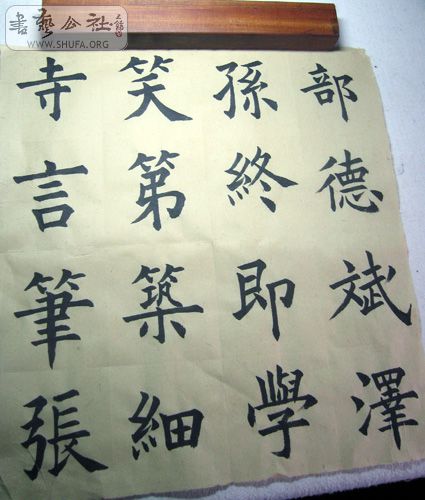 書藝公社
WWW.SHUFA.ORG
部德斌澤
孫終即學
笑第築細
寺言筆張